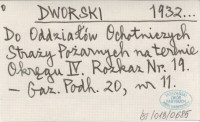 DWORSKI 1932...
Do Oddziałów Ochotniczych
Straży Pożarnych na terenie
Okręgu IV. Rozkaz Nr. 19.
— Gaz. Podh. 20, nr 11.